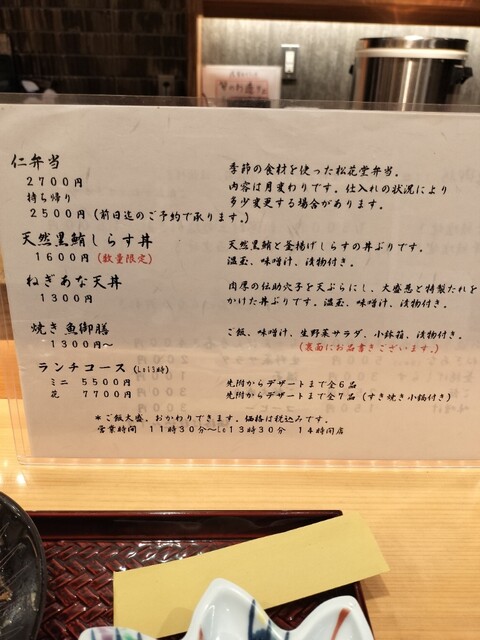 仁弁当
2700円
持ち帰り
2500円(前日迄のご予約で承ります。)
季節の食材を使った松花堂弁当。
内容は月変わりです。仕入れの状況により
多少変更する場合があります。
天然黒鮪しらす丼
1600円(数量限定)
天然黒鮪と釜揚げしらすの丼ぶりです。
温玉、味噌汁、漬物付き。
ねぎあな天丼
1300円
肉厚の伝助穴子を天ぷらにし、大盛葱と特製だれを
かけた丼ぶりです。温玉、味噌汁、漬物付き。
焼き魚御膳
1300円〜
ご飯、味噌汁、生野菜サラダ、小鉢箱、漬物付き。
(裏面にお品書きございます。)
ランチコース(Lo13時)
ミニ 5500円 先附からデザートまで全6品
花 7700円 先附からデザートまで全7品(すき焼き小鍋付き)
*ご飯大盛、おかわりできます。価格は税込みです。
営業時間 11時30分〜Lo13時30分 14時閉店